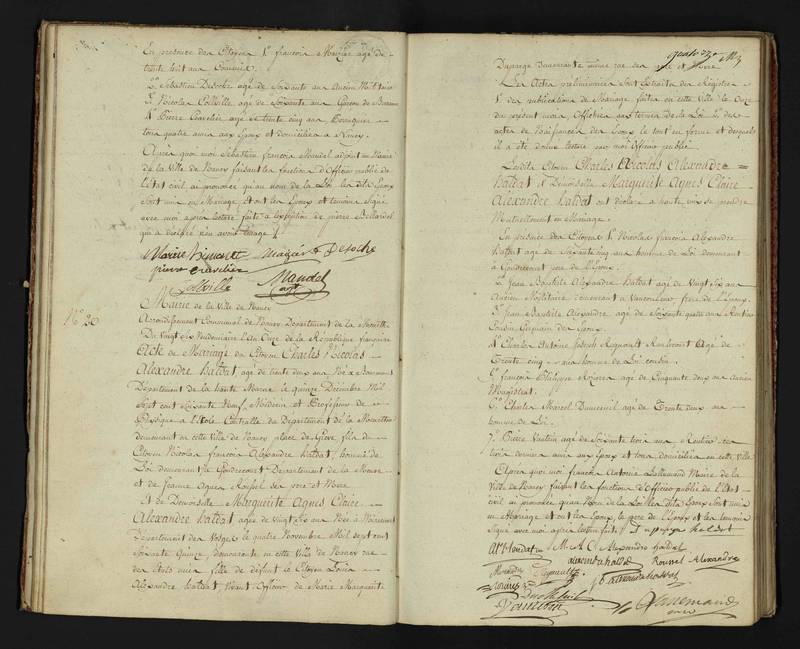 En présence des Citoyens 1º françois Mangin agé de
trente huit ans Commis.
2º Sébastien Desoche agé de Soixante ans Ancien Militaire
3º Nicolas Collville agé de Soixante ans Garçon de Bureau
4º Pierre Cravelier agé de trente cinq ans Perruquier
tous quatre amis aux Epoux et domiciliés à Nancy.
Après quoi moi Sébastien françois Mandel adjoint au Maire
de la Ville de Nancy faisant les fonctions d'Officier public de
l'état civil ai prononcé qu'au nom de la Loi les dits Epoux
sont unis en Mariage et ont les Epoux et temoins signé
avec moi après lecture faite à l'exception de pierre
qui a déclaré n'en avoir l'usage
Mangin Desoche
pierre cravelier
Collville Mandel
adjt
Nº 20
Mairie de la Ville de Nancy
Arrondissement Communal de Nancy Département de la Meurthe
Du vingt six Vendemiaire l'An Onze de la République française
Acte de Mariage du Citoyen Charles Nicolas
Alexandre haldat agé de trente deux ans Né à Bourmont
Département de la haute Marne le quinze Décembre Mil
Sept cent soixante Neuf, Médecin et Professeur de
Physique à l'Ecole Centrale du Département de la Meurthe
demeurant en cette Ville de Nancy place de Grève, fils du
Citoyen Nicolas françois Alexandre haldat, homme de
Loi demeurant à Gondrecourt Département de la Meuse
et de Jeanne Agnès Roussel ses père et Mère
Et de Demoiselle Marguerite Agnes Claire
Alexandre haldat agée de Vingt six ans Née à
Département des Vosges le quatre Novembre Mil sept cent
Soixante Quinze, demeurante en cette Ville de Nancy rue
des Etats unis fille de défunt le Citoyen Louis
Alexandre haldat, Vivant Officier et de Marie Marguerite
demeurante même rue ses père et Mère
Les Actes préliminaires sont Extraits des Registres
1º des publications de Mariage faites en cette Ville le Onze
du présent mois, Affichées aux termes de la Loi 2º des
actes de Naissances des Epoux le tout en forme et desquels
il a été donné lecture par moi Officier public
Lesdits Citoyen Charles Nicolas Alexandre
haldat & Demoiselle Marguerite Agnes Claire
Alexandre haldat ont déclaré à haute voix se prendre
Mutuellement en Mariage.
En présence des Citoyens 1º Nicolas françois Alexandre
haldat agé de Soixante cinq ans homme de Loi demeurant
à Gondrecourt père de l'Epoux.
2º Jean Baptiste Alexandre haldat agé de Vingt six ans
Ancien Militaire demeurant à Vaucouleur frère de l'Epoux
3º Jean Baptiste Alexandre agé de Soixante quatre ans Rentier
Cousin Germain des Epoux.
4º Charles Antoine Joseph Regnault agé de
Trente cinq ans homme de Loi cousin.
5º françois Philippe agé de Cinquante deux ans Ancien
Magistrat.
6º Charles Marcel Dumesnil agé de Trente deux ans
homme de Loi.
7º Pierre Vautrin agé de Soixante trois ans Rentier
trois derniers amis aux Epoux et tous domiciliés en cette Ville
Après quoi moi françois Antoine Lallemand Maire de la
Ville de Nancy faisant les fonctions d'Officier public de l'état
civil ai prononcé qu'au Nom de la Loi les dits Epoux sont unis
en Mariage et ont les Epoux, le père de l'Epoux et les temoins
signé avec moi après lecture faite.
M. A. C. Alexandre haldat
alexandre haldat Roussel Alexandre
Regneault
Dumesnil
Vautrin Lallemand
maire